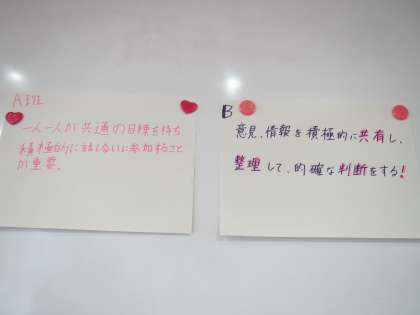 A班
一人一人が共通の目標を持ち
積極的に話し合いに参加すること
が重要。
B
意見、情報を積極的に共有し、
整理して、的確な判断をする!